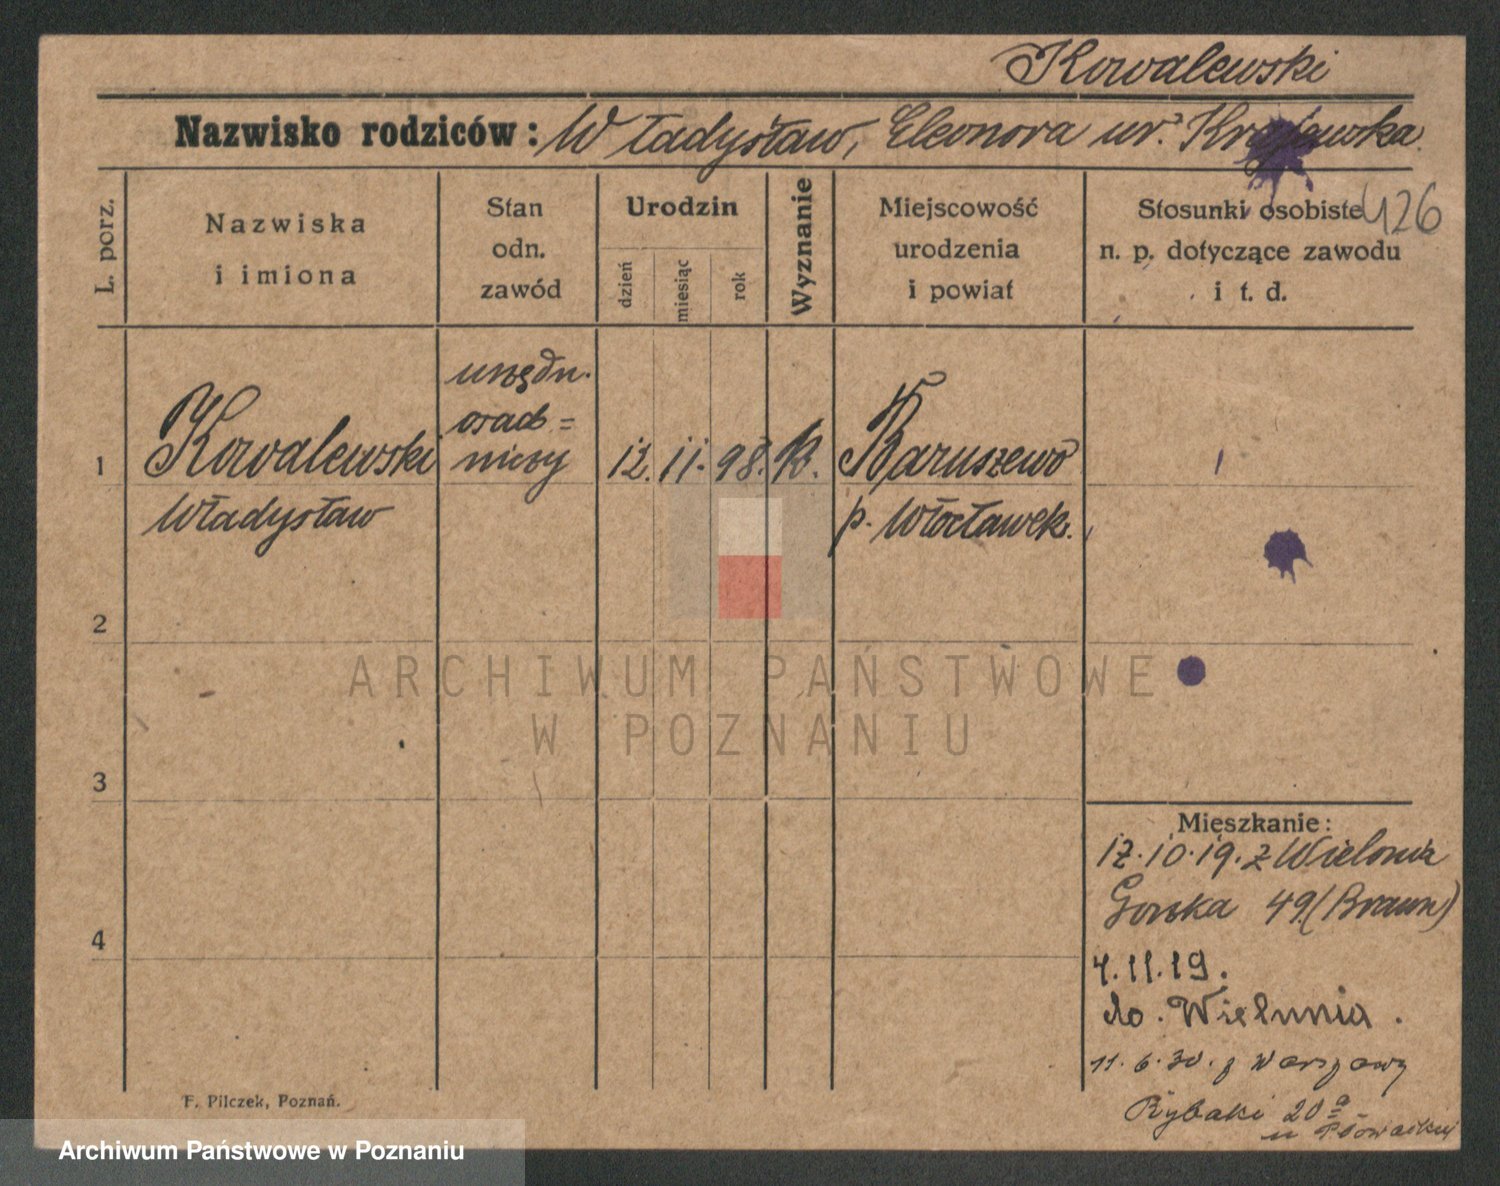 Kowalewski
Nazwisko rodziców: Władysław, Eleonora ur. Krajewska
426
L. porz.
Nazwiska
i imiona
Stan
odn.
zawód
Urodzin
dzień
miesiąc
rok
Wyznanie
Miejscowość
urodzenia
i powiat
Stosunki osobiste
n. p. dotyczące zawodu
i t. d.
1
Kowalewski
Władysław
urzędn.
osad=
niczy
12. 11. 98. k.
Baruszewo
p. Włocławek.
2
3
4
ARCHIWUM PAŃSTWOWE
W POZNANIU
Mieszkanie:
17.10.19. z Wielunia
Gorska 49 (Braun)
4.11.19.
do. Wielunia.
11.6.30. z Warszawy
Rybaki 20a
u
F. Pilczek, Poznań.
Archiwum Państwowe w Poznaniu